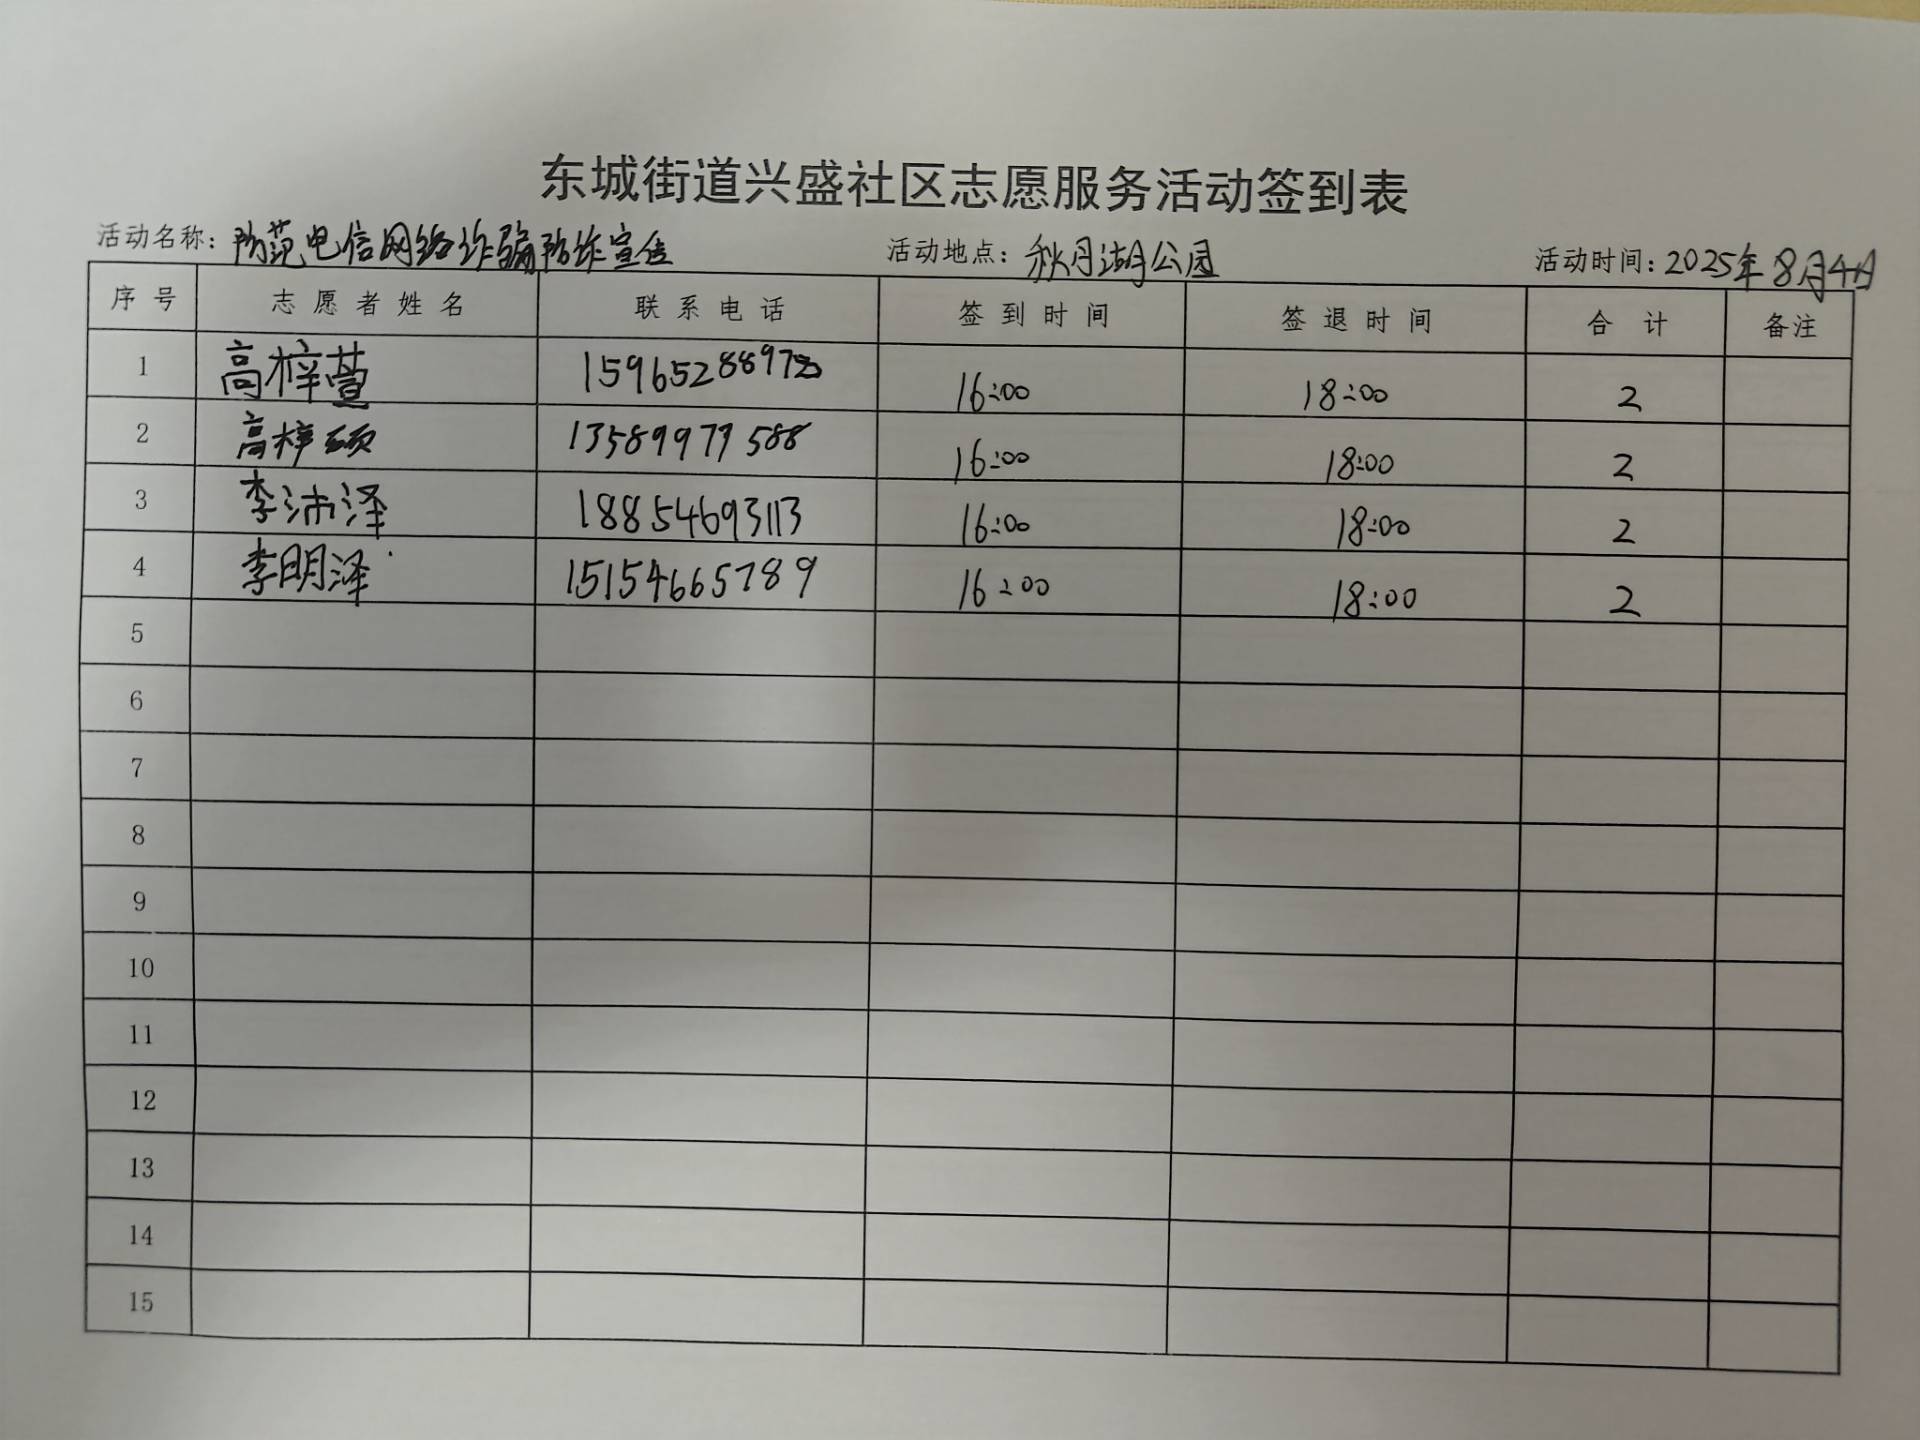 东城街道兴盛社区志愿服务活动签到表
活动名称：防范电信网络诈骗防诈宣传 活动地点：秋月湖公园 活动时间：2025年8月4日
序号 志愿者姓名 联系电话 签到时间 签退时间 合计 备注
1 高梓萱 16:00 18:00 2
2 高梓硕 13589977588 16:00 18:00 2
3 李沛泽 18854693113 16:00 18:00 2
4 李明泽 15154665789 16:00 18:00 2
5
6
7
8
9
10
11
12
13
14
15